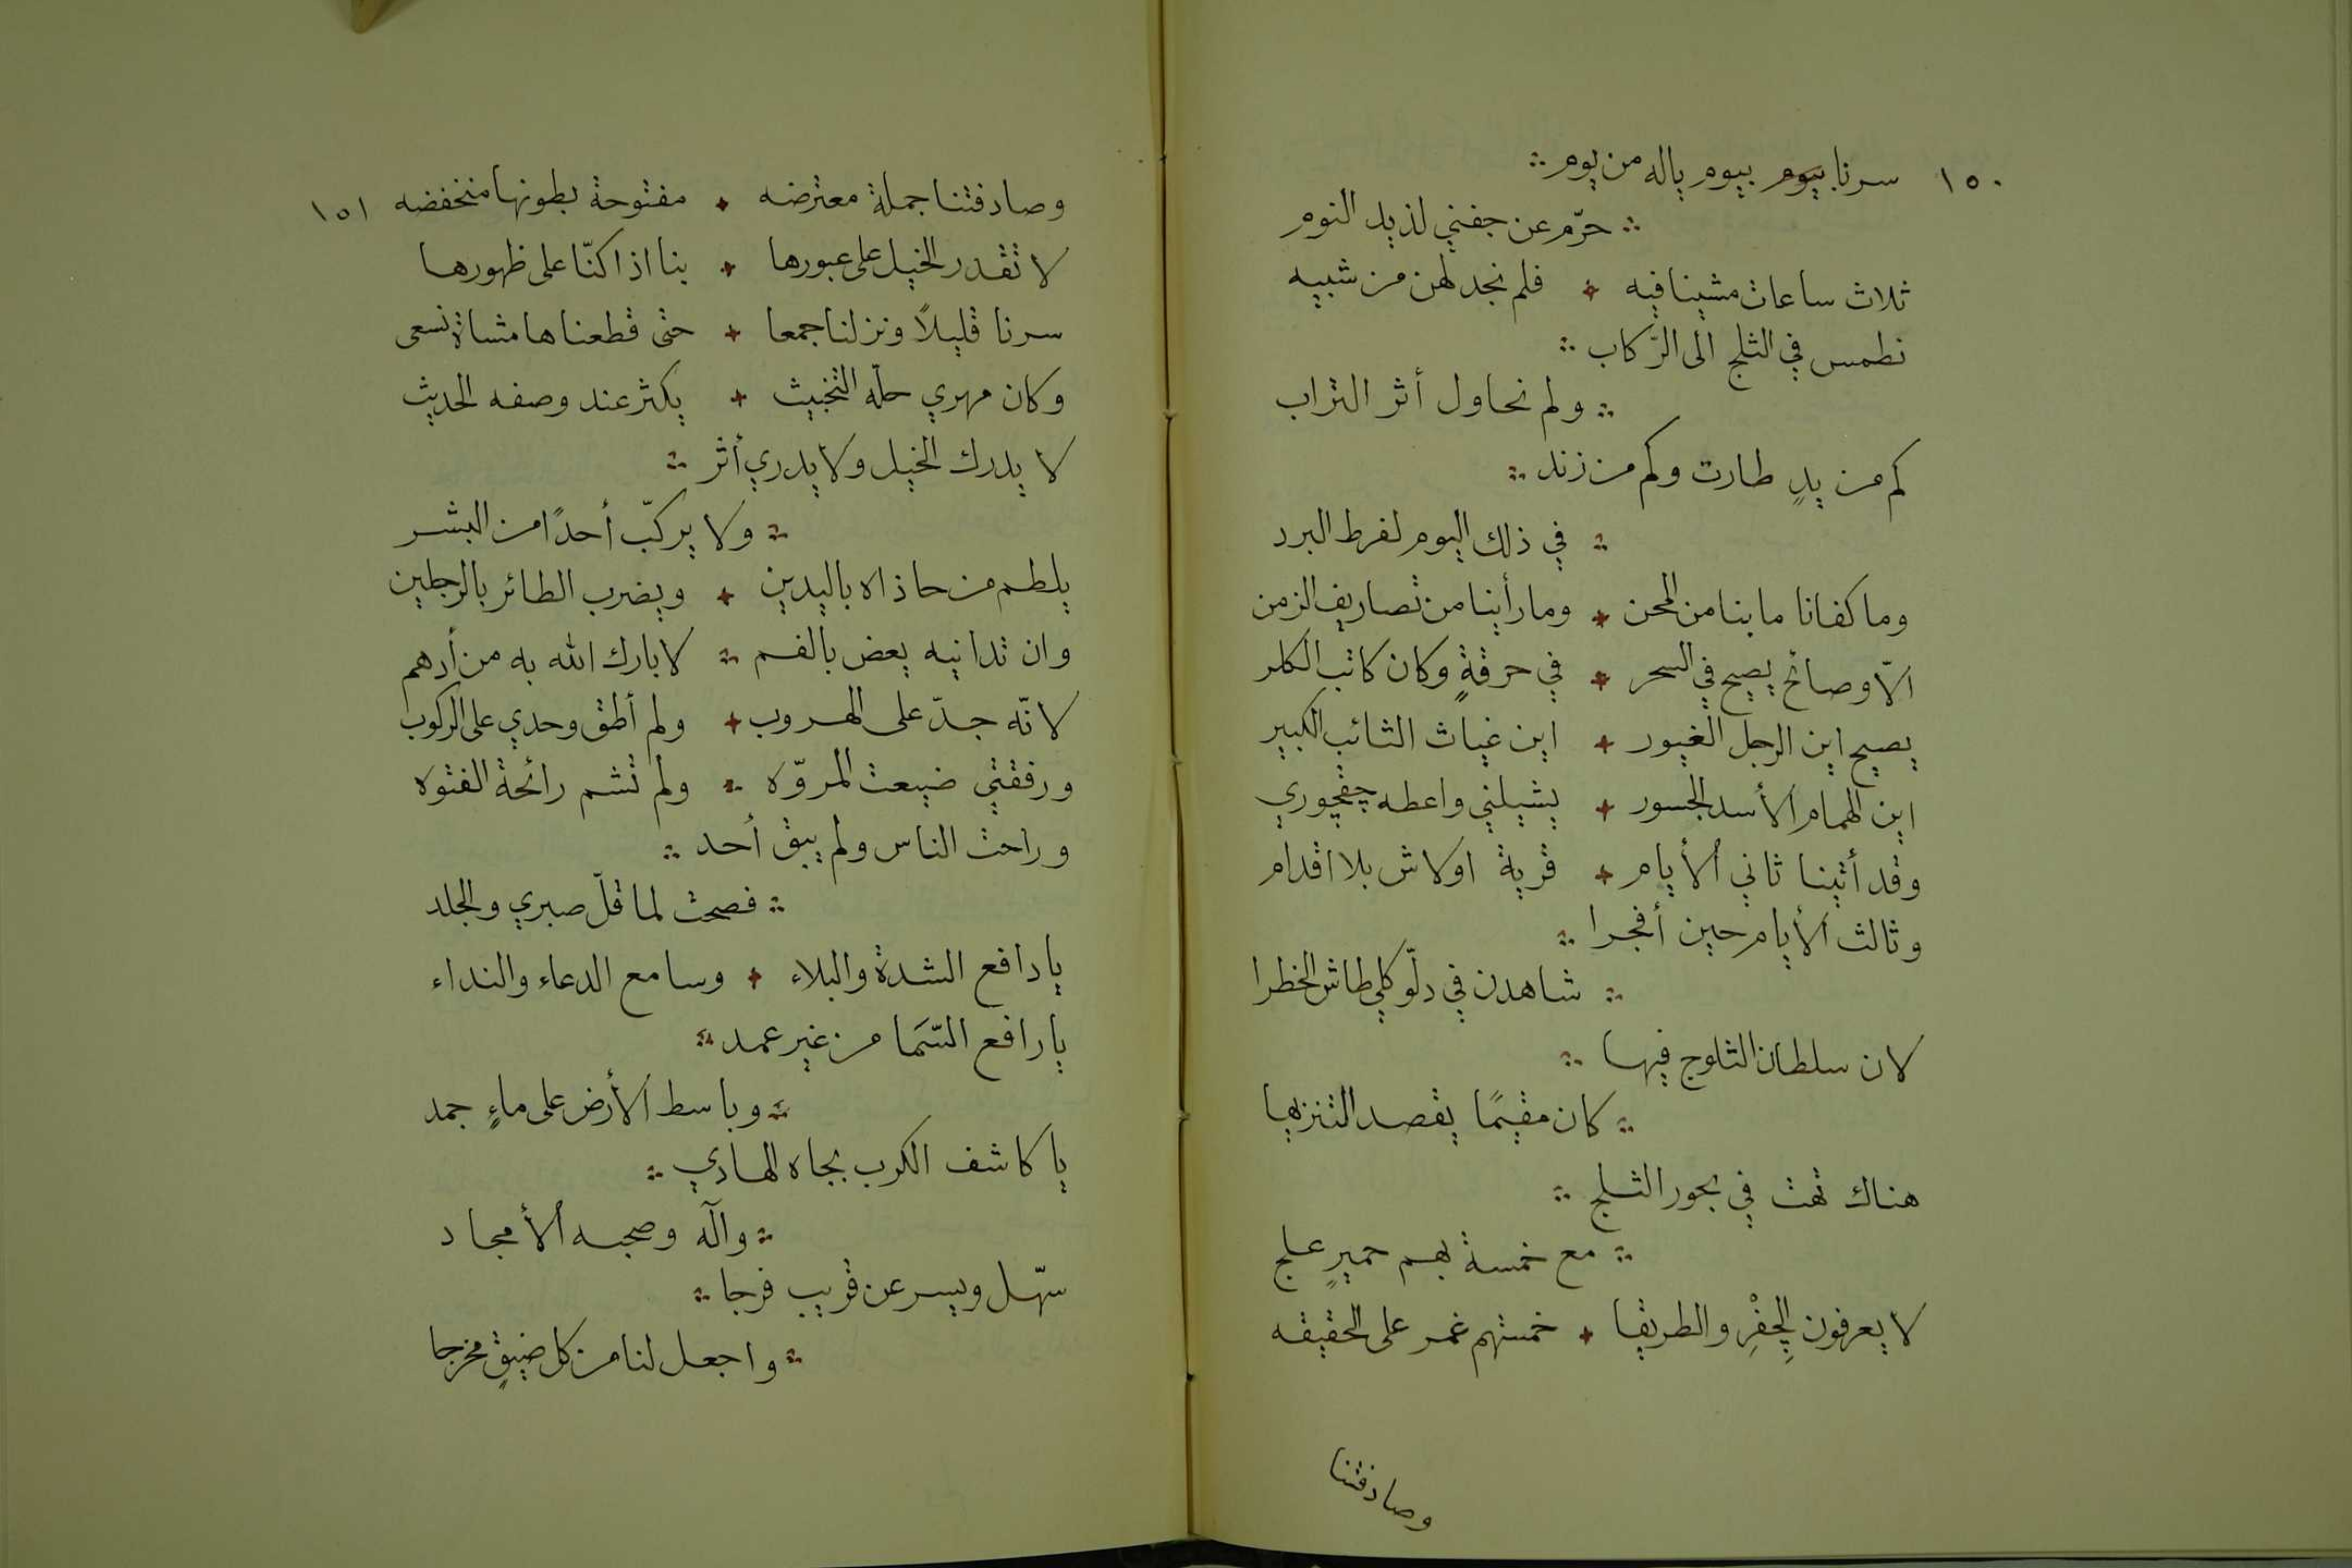 ١٥٠
سرنا بيوم بيوم ياله من يوم
حرّم عن جفني لذيذ النوم
ثلاث ساعات مشينا فيه فلم نجد لهن من شبيه
نطمس في الثلج الى الرّكاب
ولم نحاول أثر التراب
كم من يدٍ طارت وكم من زند
في ذلك اليوم لفرط البرد
وما كفانا ما بنا من المحن وما رأينا من تصاريف الزمن
الّا وصائح يصيح في السحر في حرقةٍ وكان كاتب الكلر
يصيح اين الرجل الغيور اين غياث الثائب الكبير
اين الهمام الأسد الجسور يشيلني واعطه چقچوري
وقد أتينا ثاني الأيام قرية اوكاش بلا اقدام
وثالث الأيام حين أفجرا
شاهدن في دلّوكلي طاش الخطرا
لان سلطان الثلوج فيها
كان مقيمًا يقصد التنزيها
هناك تهت في بحور الثلج
مع خمسة بهم حميرٍ علج
لا يعرفون الچِفْرِ والطريقا خمستهم غمر على الحقيقه
وصادفتنا
١٥١
وصادفتنا جملة معترضه مفتوحة بطونها منخفضه
لا تقدر الخيل على عبورها بنا اذا كنّا على ظهورها
سرنا قليلاً ونزلنا جمعا حتى قطعناها مشاة نسعى
وكان مهري حلّه التخبيث يكثر عند وصفه الحديث
لا يدرك الخيل ولا يدري أثر
ولا يركبّ أحدًا من البشر
يلطم من حاذاه باليدين ويضرب الطائر بالرجلين
وان تدانيه يعض بالفم لا بارك الله به من أدهم
لانّه جدّ على الهروب ولم أطق وحدي على الركوب
ورفقتي ضيعت المروّه ولم تشم رائحة الفتوه
وراحت الناس ولم يبق أحد
فصحت لما قلّ صبري والجلد
يا دافع الشدة والبلاء وسامع الدعاء والنداء
يا رافع السّمَا من غير عمد
وباسط الأرض على ماءٍ جمد
يا كاشف الكرب بجاه الهادي
وآله وصحبه الأمجاد
سهّل ويسر عن قريب فرجا
واجعل لنا من كل ضيقٍ مخرجا